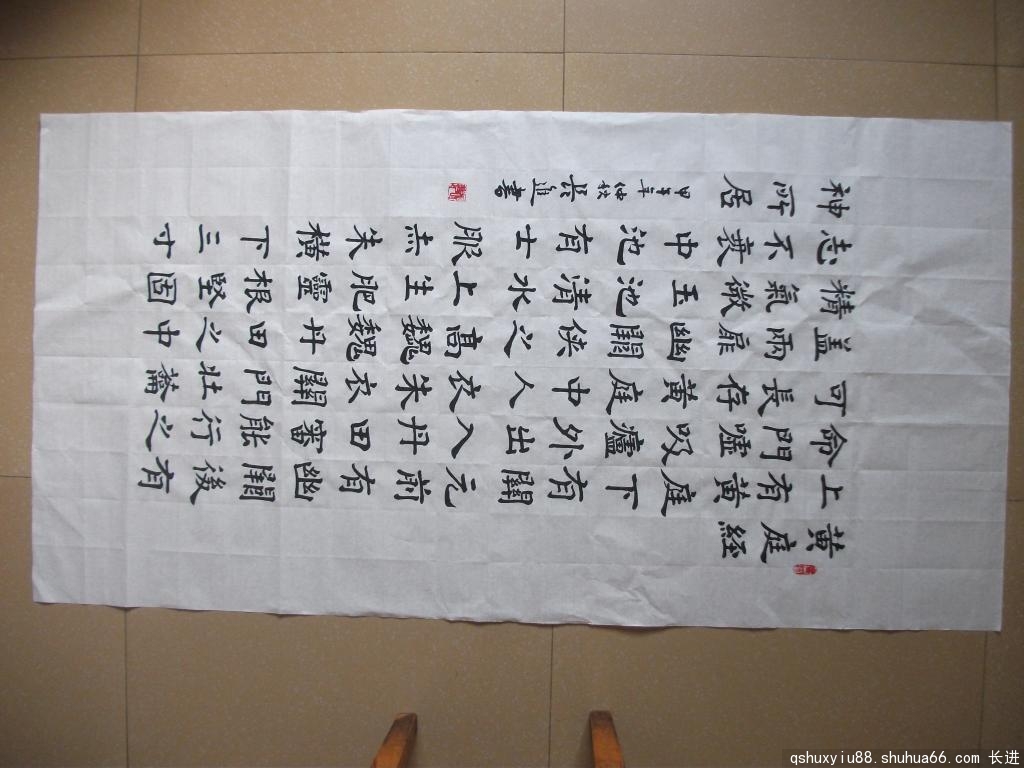 黄庭經
上有黄庭下有關元前有幽闕後有
命門嘘吸廬外出入丹田審能行之
可長存黄庭中人衣朱衣關門壯籥
盖兩扉幽闕侠之高魏魏丹田之中
精氣微玉池清水上生肥靈根堅固
志不衰中池有士服赤朱横下三寸
神所居
甲午年仲秋長進書
qshuxyiu88.shuhua66.com 长进